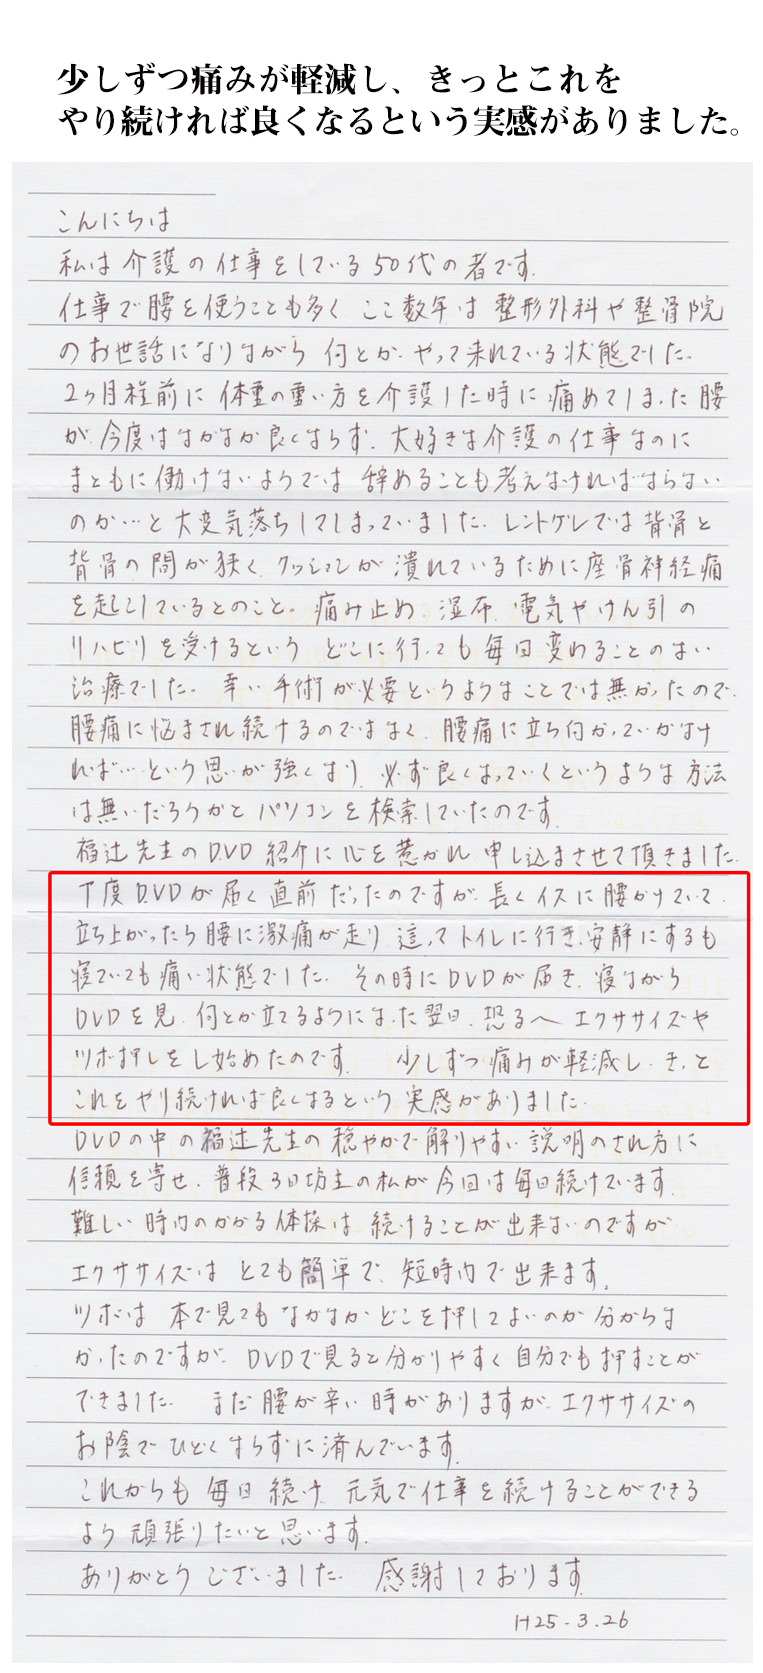 少しずつ痛みが軽減し、きっとこれを
やり続ければ良くなるという実感がありました。
こんにちは
私は介護の仕事をしている50代の者です。
仕事で腰を使うことも多く ここ数年は 整形外科や整骨院
のお世話になりながら 何とか やって来れている状態でした。
2ヶ月程前に 体重の重い方を介護した時に痛めてしまった腰
が、今度はなかなか良くならず、大好きな介護の仕事なのに
まともに働けないようでは 辞めることも考えなければならない
のか…と大変気落ちしてしまっていました。レントゲンでは背骨と
背骨の間が狭く、クッションが潰れているために座骨神経痛
を起こしているとのこと。痛み止め、湿布、電気やけん引の
リハビリを受けるという どこに行っても毎回変わることのない
治療でした。幸い手術が必要というようなことでは無かったので、
腰痛に悩まされ続けるのではなく、腰痛に立ち向かっていかなけ
れば…という思いが強くなり、必ず良くなっていくというような方法
は無いだろうかと パソコンを検索していたのです。
福辻先生のDVD紹介に心を惹かれ 申し込まさせて頂きました。
丁度DVDが届く直前だったのですが、長くイスに腰かけていて、
立ち上がったら腰に激痛が走り 這ってトイレに行き、安静にするも
寝ていても痛い状態でした。その時にDVDが届き、寝ながら
DVDを見、何とか立てるようになった翌日、恐る〱 エクササイズや
ツボ押しをし始めたのです。 少しずつ痛みが軽減し、きっと
これをやり続ければ良くなるという実感がありました。
DVDの中の福辻先生の穏やかで解りやすい説明のされ方に
信頼を寄せ、普段3日坊主の私が今回は毎日続けています。
難しい時間のかかる体操は続けることが出来ないのですが
エクササイズはとても簡単で、短時間で出来ます。
ツボは 本で見てもなかなかどこを押してよいのか分からな
かったのですが、DVDで見ると分かりやすく自分でも押すことが
できました。 まだ腰が辛い時がありますが、エクササイズの
お陰でひどくならずに済んでいます。
これからも毎日続け、元気で仕事を続けることができる
よう頑張りたいと思います。
ありがとうございました。感謝しております。
H25.3.26